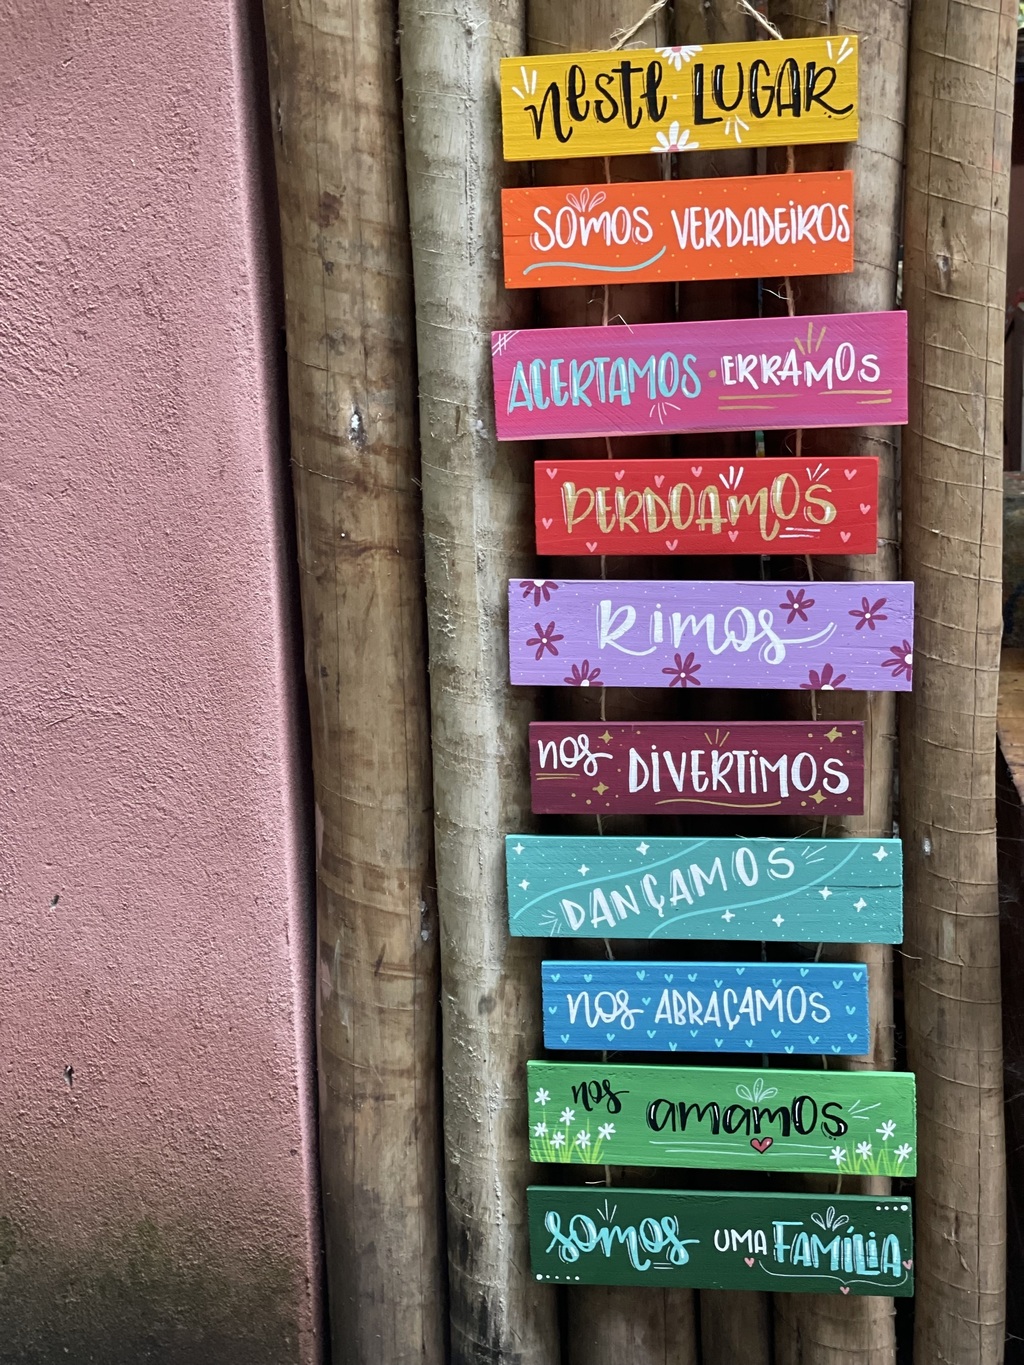 neste LUGAR
SOMOS VERDADEIROS
ACERTAMOS • ERRAMOS
PERDOAMOS
Rimos
nos DIVERTIMOS
DANÇAMOS
nos ABRAÇAMOS
nos amamos
somos UMA FAMÍLIA